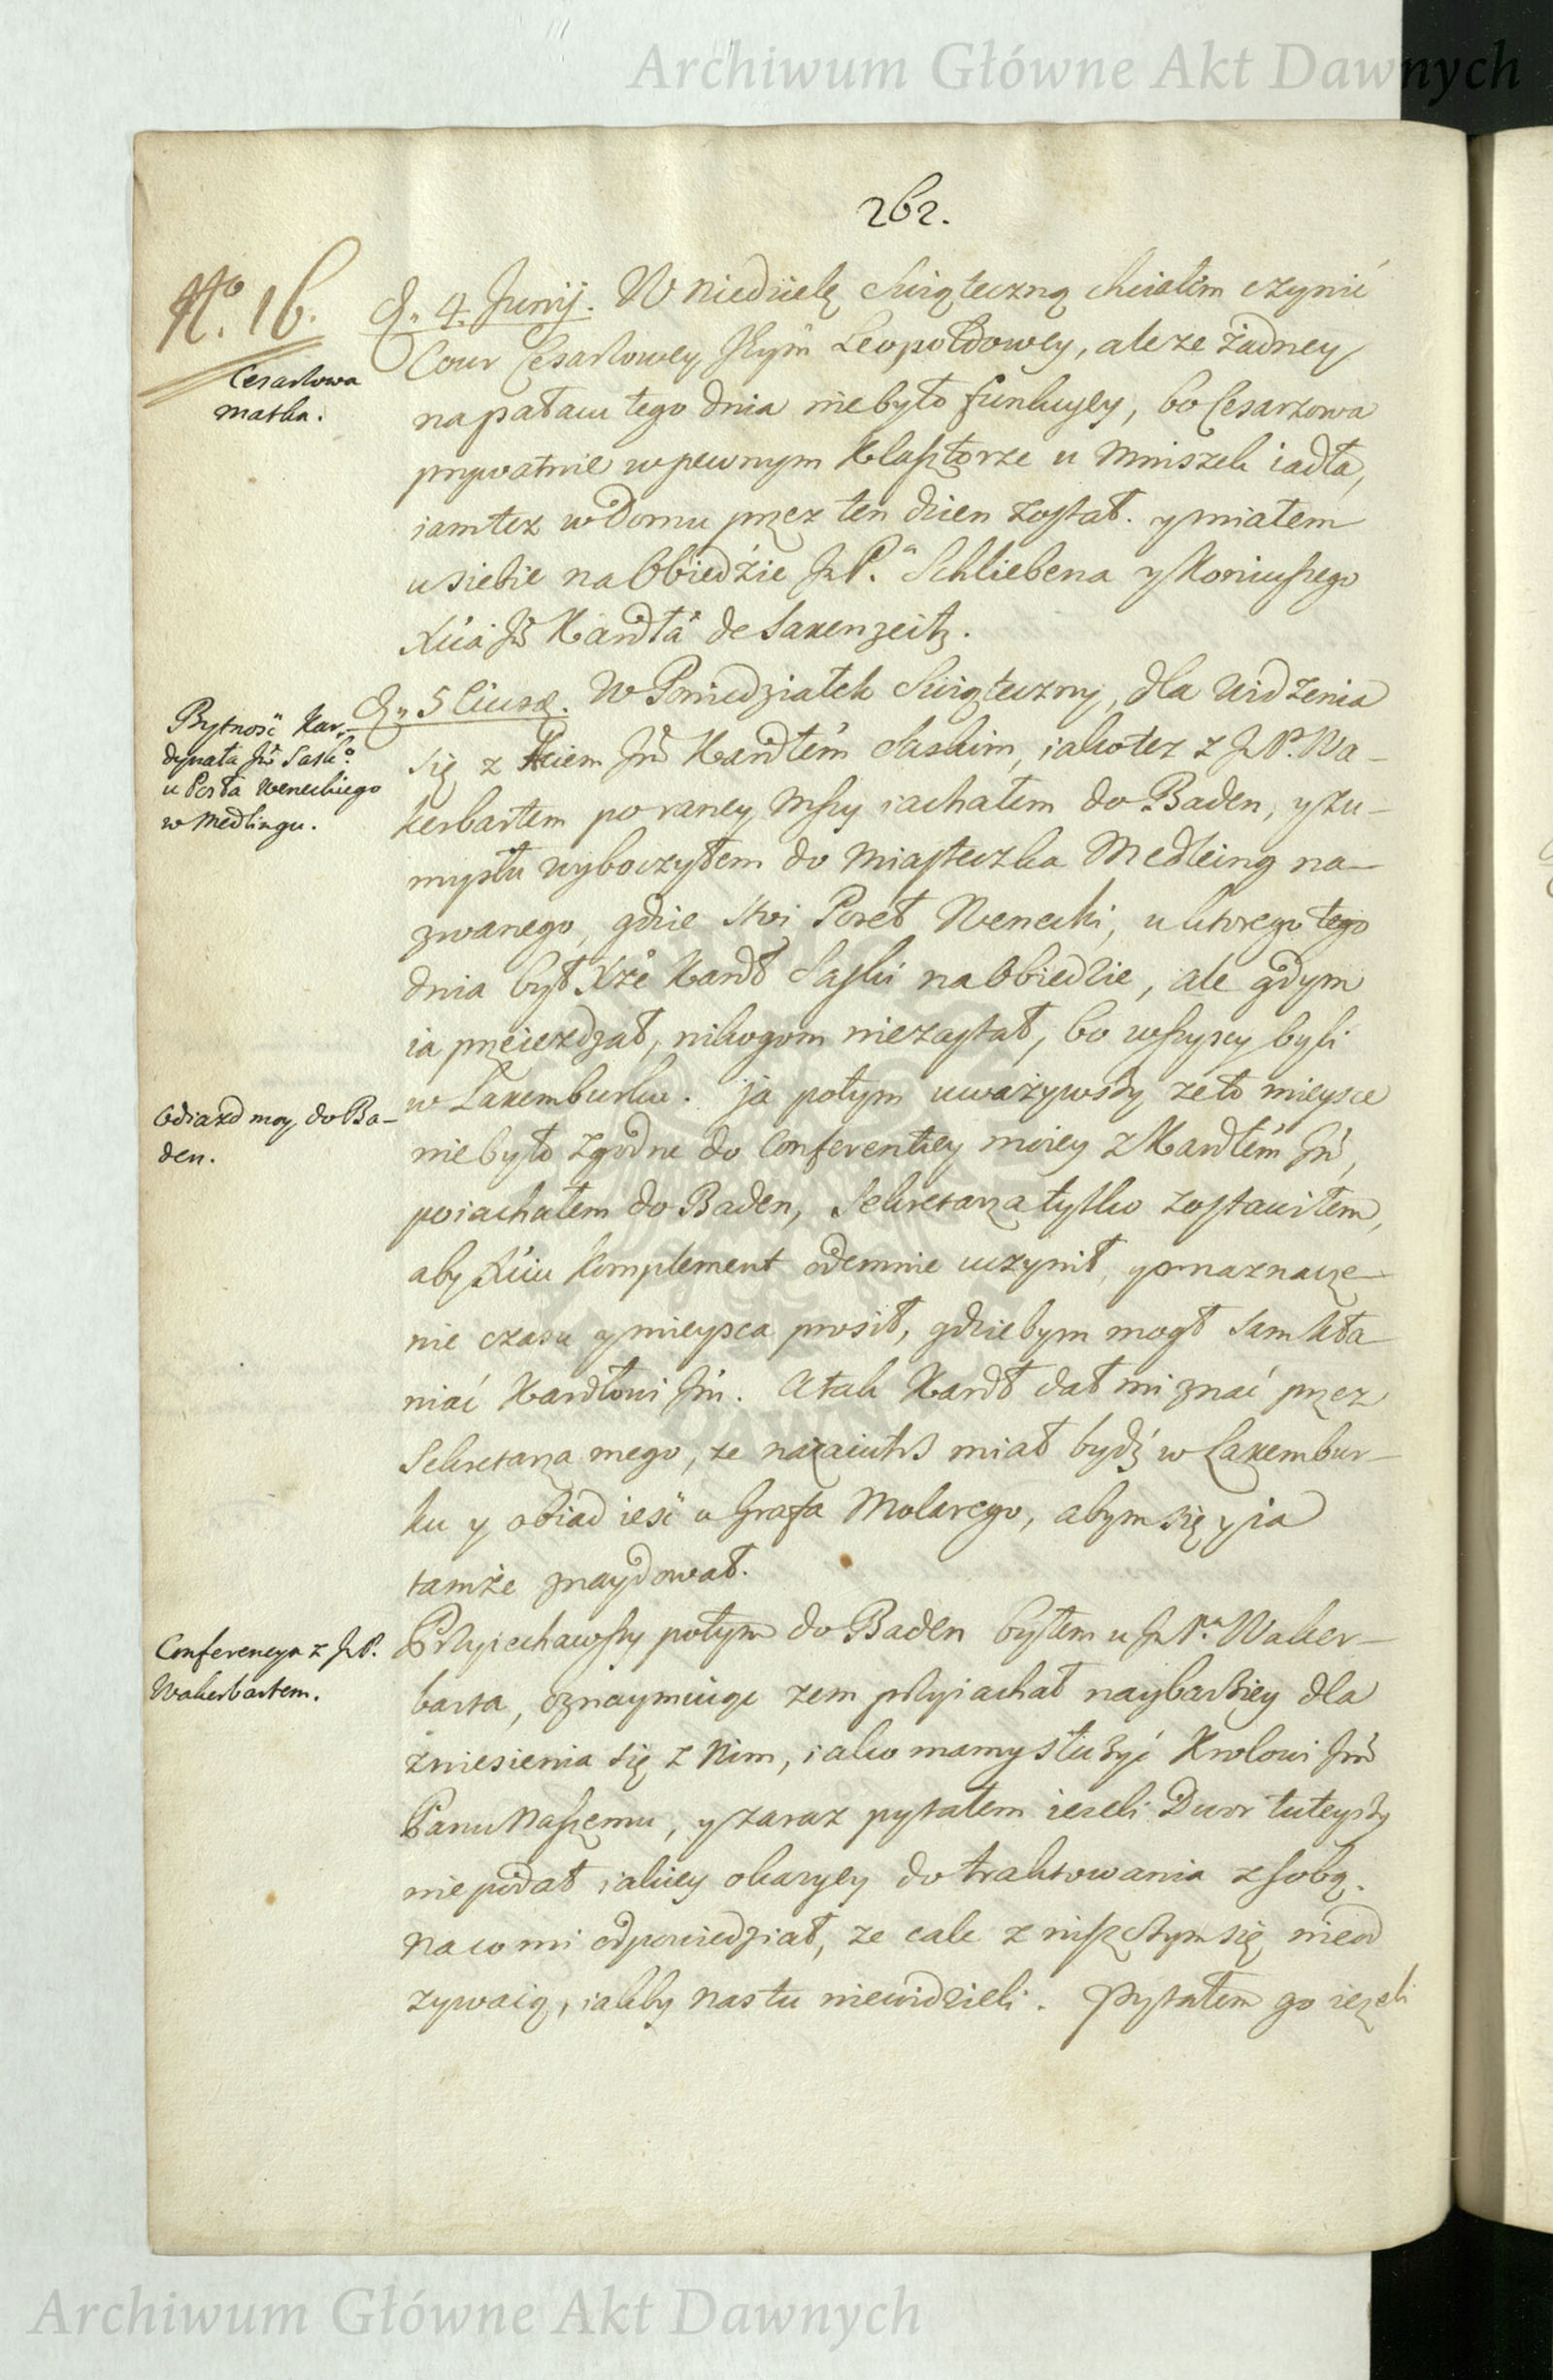 Archiwum Główne Akt Dawnych
262.
No. 16.
Cesarzowa
matka.
D. 4. Junij. W niedzielę Swiąteczną chciałem czynić
Cour Cesarzowey Jeym Leopoldowey, ale ze żadney
na pałacu tego dnia niebyło funkcyey, bo Cesarzowa
prywatnie w pewnym Klasztorze u Mniszek iadła,
iam tez w Domu przez ten dzien został. y miałem
u siebie na Obiedźie JP.a Schliebena y Koniuszego
Xcia Jm Kardła de Saxenzeitz.
Bytność Kar-
dynała Jm Sask.o
u Posła Weneckiego
w Medlingu.
D. 5 Ciusd. W Poniedziałek Swiąteczny, dla widzenia
się z Xciem Jm Kardłem Saskim, iako tez z JP. Wa-
kerbartem po raney Mszy iachałem do Baden, y zu-
mysłu wyboczyłem do Miasteczka Medleing na-
zwanego, gdzie stoi Poseł Wenecki, u ktorego tego
dnia był Xże Kardł Saski na Obiedzie, ale gdym
ia przeiezdzał, nikogom niezastał, bo wszyscy byli
w Laxemburku. ja potym uważywszy ze to mieysce
Odiazd moy do Ba-
den.
niebyło zgodne do Conferentiey moiey z Kardłem Jm,
poiachałem do Baden, Sekretarza tylko zostawiłem,
aby Xciu Komplement odemnie uczynił, y o naznacze-
nie czasu y mieysca prosił, gdziebym mogł sam kła-
niać Kardłowi Jm. A tak Kardł dał mi znać przez
Sekretarza mego, ze nazaiutrz miał bydź w Laxembur-
ku y obiad ieść u Grafa Molarego, abym się y ia
tamże znaydował.
Conferencya z JP.
Wakerbartem.
Przyiechawszy potym do Baden byłem u JP.a Waker-
barta, oznaymuiąc zem przyiachał naybarziey dla
zniesienia się z Nim, iako mamy służyć Krolowi Jm
Panu Naszemu, y zaraz pytałem iezeli Dwor tuteyszy
nie podał iakiey okazyey do traktowania z sobą.
Na co mi odpowiedział, ze cale z niszczym się nieod
zywaią, iakby nas tu niewidzieli. Pytałem go iezeli
Archiwum Główne Akt Dawnych